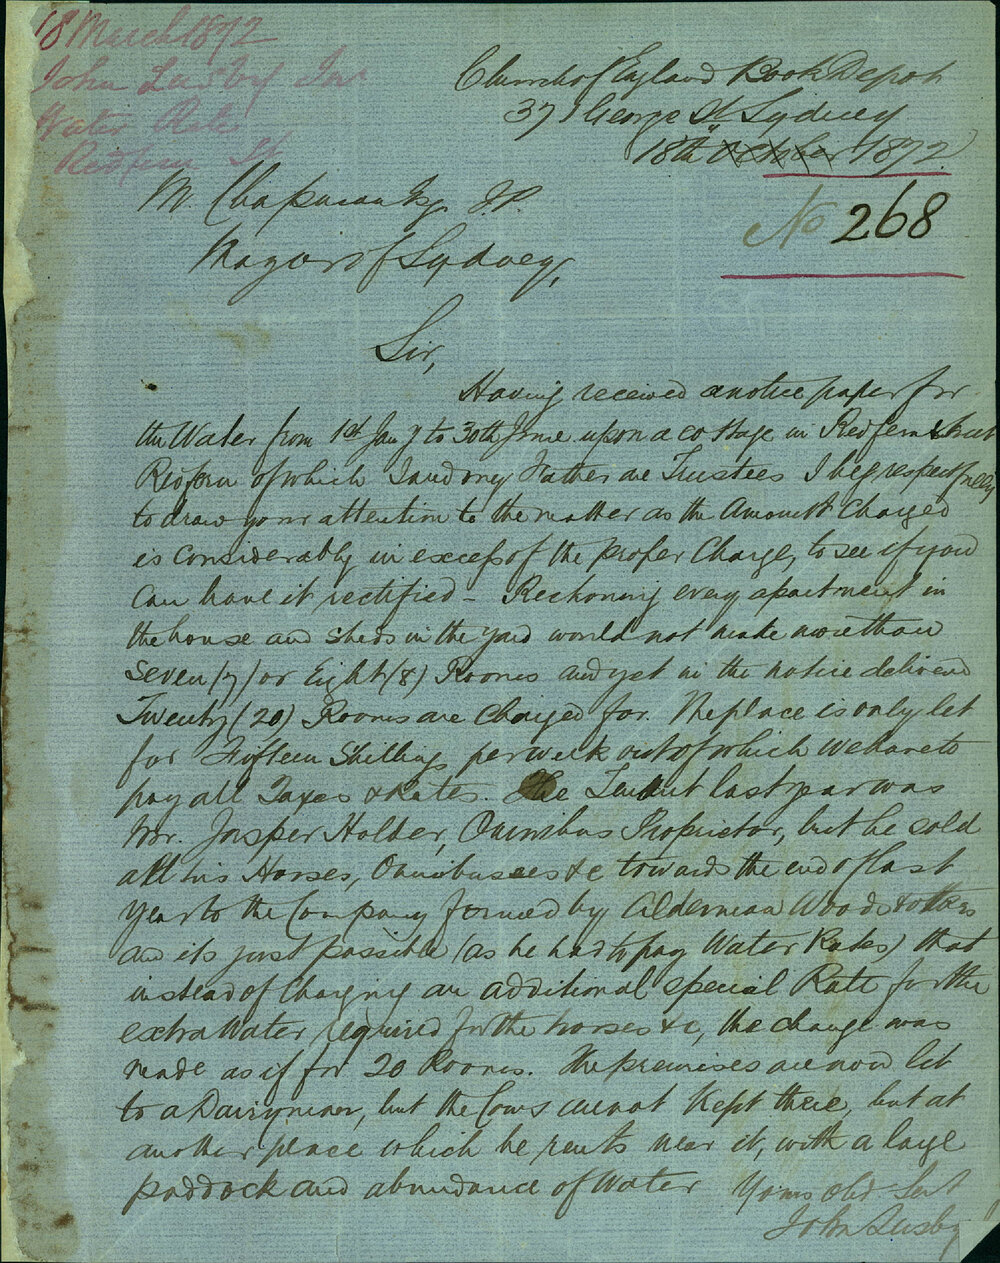 18 March 1872
John Lusby Jnr
Water Rate
Redfern St
Church of England Book Depot
371 George St Sydney
18th October 1872
No 268
M. Chapman Esq. J.P.
Mayor of Sydney,
Sir,
Having received a notice paper for
the Water from 1st Jany to 30th June upon a cottage in Redfern Street
Redfern of which I and my Father are Trustees I beg respectfully
to draw your attention to the matter as the Amount Charged
is Considerably in excess of the proper Charge, to see if you
Can have it rectified - Reckoning every apartment in
the house and sheds in the yard would not make more than
Seven (7) or Eight (8) Rooms and yet in the notice delivered
Twenty (20) Rooms are Charged for. The place is only let
for Fifteen Shillings per week out of which we have to
pay all Taxes & Rates. The Tenant last year was
Mr. Jasper Holder, Omnibus Proprietor, but he sold
all his Horses, Omnibusees &c towards the end of last
Year to the Company formed by Alderman Woods & others
and its just possible (as he had to pay Water Rates) that
instead of Charging an additional special Rate for the
extra Water required for the horses &c, the charge was
made as if for 20 Rooms. The premises are now let
to a Dairyman, but the Cows are not Kept there, but at
another place which he rents near it, with a large
paddock and abundance of Water
Yours Obd Sevt
John Lusby